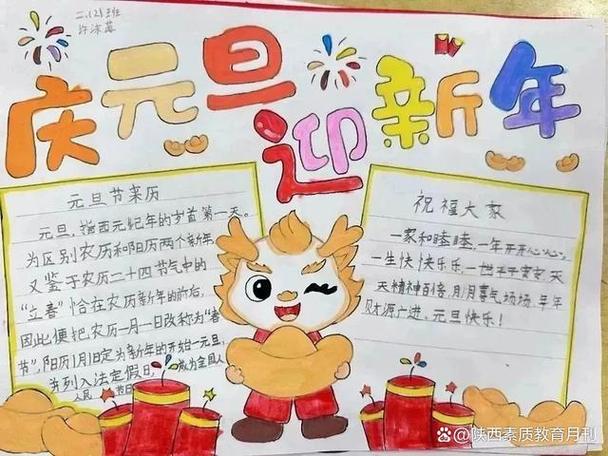 二.(2)班
庆元旦
迎新年
元旦节来历
元旦，指西元纪年的岁首第一天。
为区别农历和阳历两个新年，
又鉴于农历二十四节气中的
“立春”恰在农历新年的前后，
因此便把农历一月一日改称为“春
节”，阳历1月1日定为新年的开始—元旦，
并列入法定假日，成为全国人
人民 节日
祝福大家
一家和睦睦，一年开开心心，
一生快快乐乐，一世平平安安，天
天精神百倍，月月喜气扬扬，年年
财源广进，元旦快乐！
陕西素质教育月刊